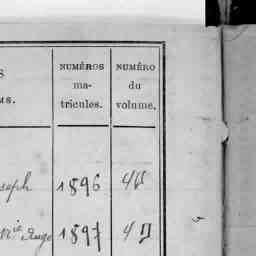 S
MS.
NUMÉROS
ma-
tricules.
NUMÉRO
du
volume.
seph 1896
Mie Ange 1897